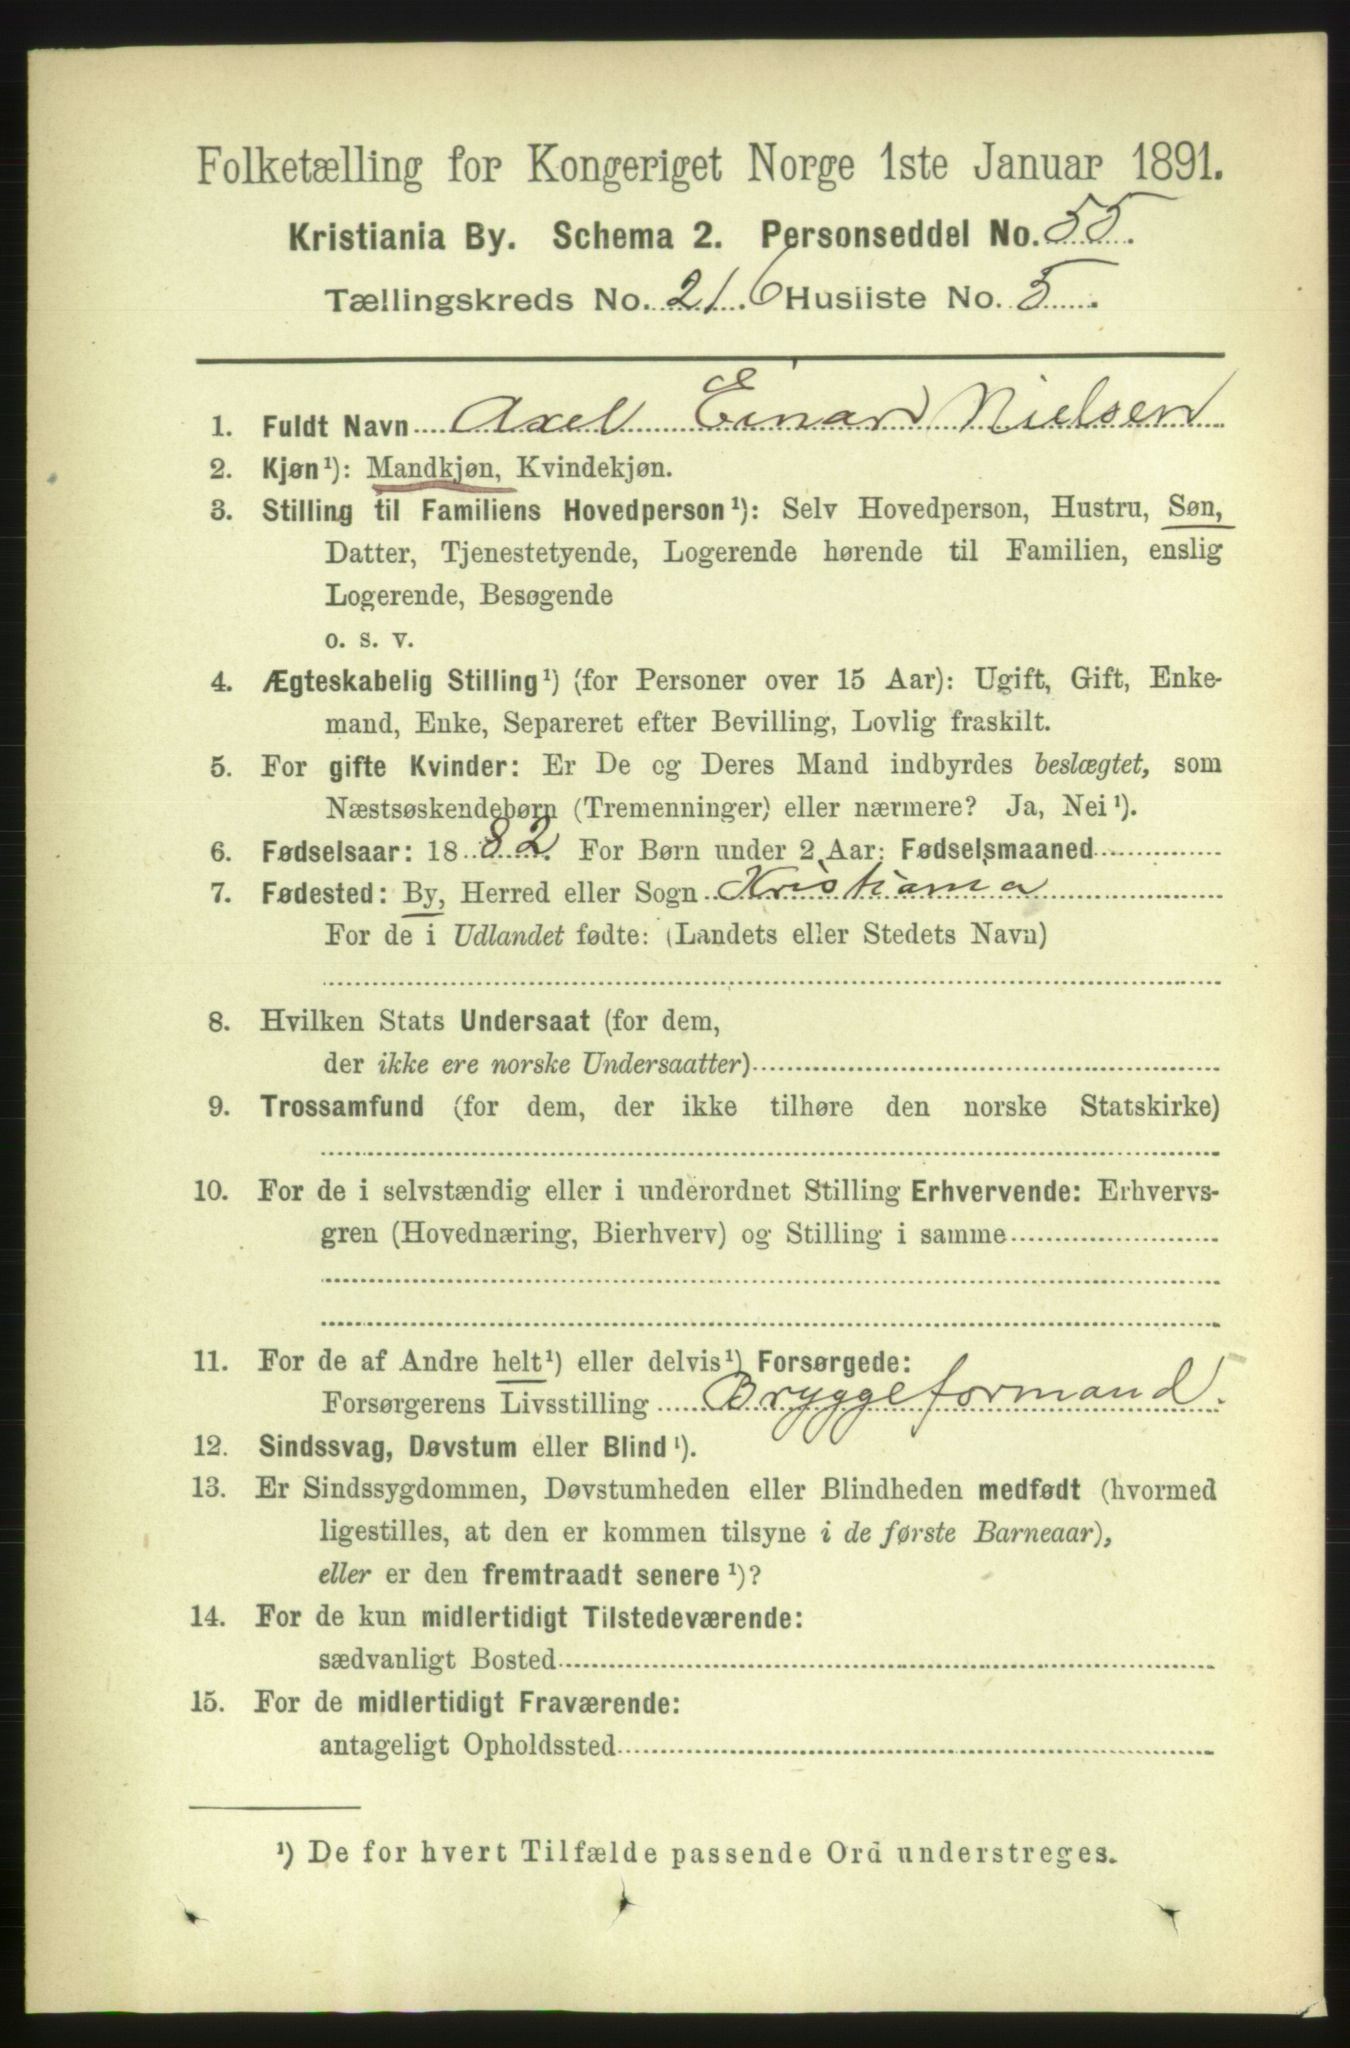 Folketælling for Kongeriget Norge 1ste Januar 1891.
Kristiania By. Schema 2. Personseddel No. 55.
Tællingskreds No. 216 Husliste No. 5.
1. Fuldt Navn Axel Einar Nielsen
2. Kjøn¹): Mandkjøn, Kvindekjøn.
3. Stilling til Familiens Hovedperson¹): Selv Hovedperson, Hustru, Søn,
Datter, Tjenestetyende, Logerende hørende til Familien, enslig
Logerende, Besøgende
o. s. v.
4. Ægteskabelig Stilling¹) (for Personer over 15 Aar): Ugift, Gift, Enke-
mand, Enke, Separeret efter Bevilling, Lovlig fraskilt.
5. For gifte Kvinder: Er De og Deres Mand indbyrdes beslægtet, som
Næstsøskendebørn (Tremenninger) eller nærmere? Ja, Nei¹).
6. Fødselsaar: 1882. For Børn under 2 Aar: Fødselsmaaned
7. Fødested: By, Herred eller Sogn Kristiania
For de i Udlandet fødte: (Landets eller Stedets Navn)
8. Hvilken Stats Undersaat (for dem,
der ikke ere norske Undersaatter)
9. Trossamfund (for dem, der ikke tilhøre den norske Statskirke)
10. For de i selvstændig eller i underordnet Stilling Erhvervende: Erhvervs-
gren (Hovednæring, Bierhverv) og Stilling i samme
11. For de af Andre helt¹) eller delvis¹) Forsørgede:
Forsørgerens Livsstilling Bryggeformand.
12. Sindssvag, Døvstum eller Blind¹).
13. Er Sindssygdommen, Døvstumheden eller Blindheden medfødt (hvormed
ligestilles, at den er kommen tilsyne i de første Barneaar),
eller er den fremtraadt senere¹)?
14. For de kun midlertidigt Tilstedeværende:
sædvanligt Bosted
15. For de midlertidigt Fraværende:
antageligt Opholdssted
¹) De for hvert Tilfælde passende Ord understreges.